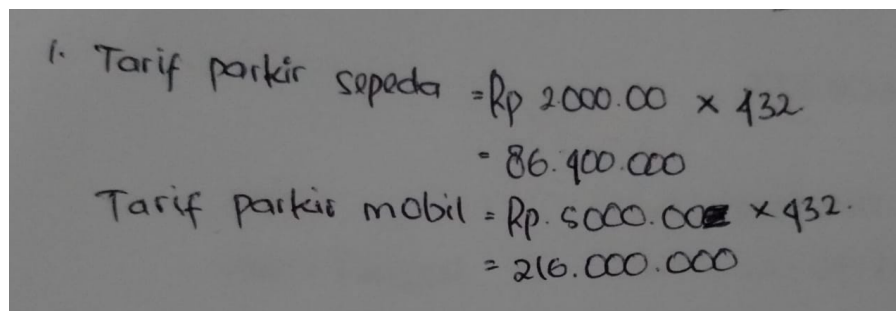 1. Tarif parkir sepeda = Rp 2.000.00 x 432
= 86.400.000
Tarif parkir mobil = Rp. 5000.00 x 432.
= 216.000.000